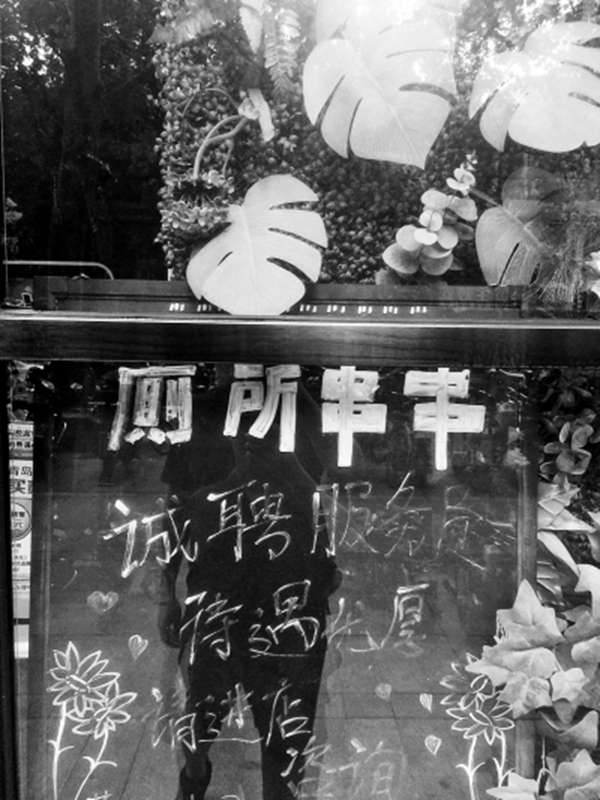 厕所串干
诚聘服务员
待遇优厚
请进店
咨询
青岛